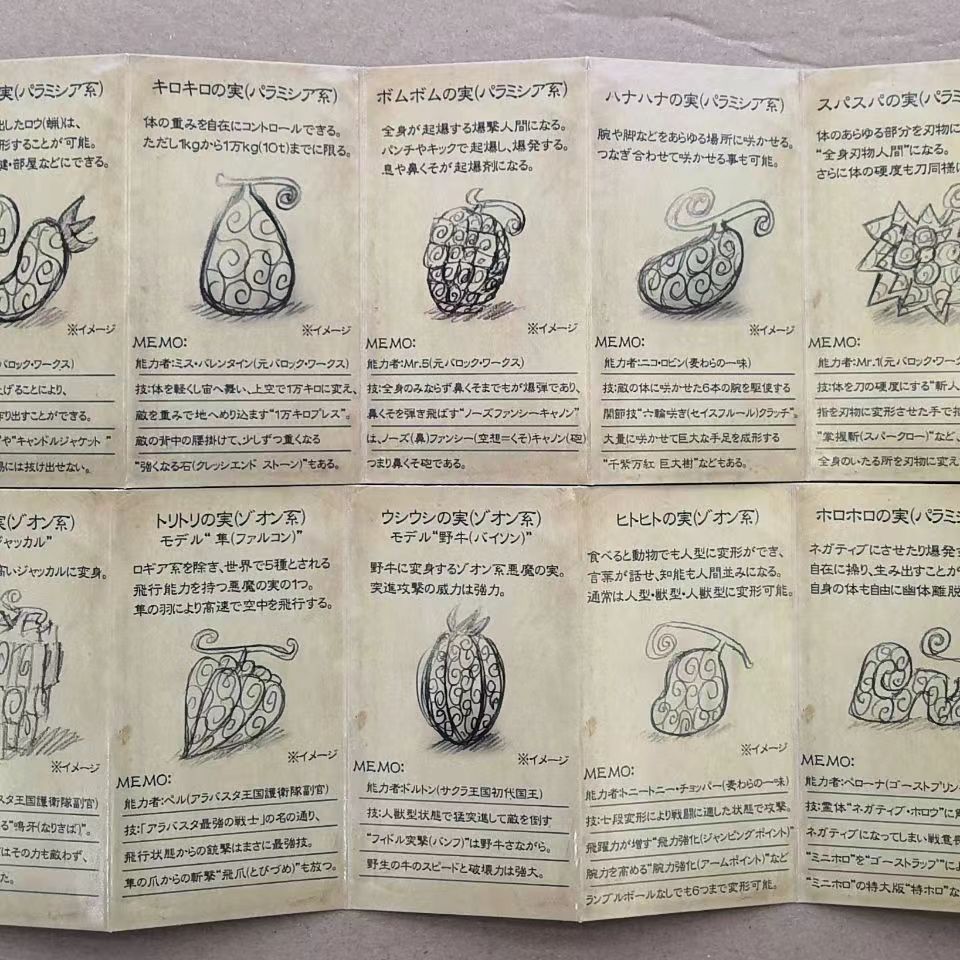 実(パラミシア系)
出したロウ(蝋)は、
形することが可能。
鍵・部屋などにできる。
バロック・ワークス)
上げることにより、
作り出すことができる。
”や“キャンドルジャケット”
易には抜け出せない。
キロキロの実(パラミシア系)
体の重みを自在にコントロールできる。
ただし1kgから1万kg(10t)までに限る。
※イメージ
MEMO:
能力者:ミス・バレンタイン(元バロック・ワークス)
技:体を軽くし宙へ舞い、上空で1万キロに変え、
敵を重みで地へめり込ます“1万キロプレス”。
敵の背中の腰掛けて、少しずつ重くなる
“強くなる石(クレッシエンド ストーン)”もある。
ボムボムの実(パラミシア系)
全身が起爆する爆撃人間になる。
パンチやキックで起爆し、爆発する。
息や鼻くそが起爆剤になる。
※イメージ
MEMO:
能力者:Mr.5(元バロック・ワークス)
技:全身のみならず鼻くそまでもが爆弾であり、
鼻くそを弾き飛ばす“ノーズファンシーキャノン”
は、ノーズ(鼻)ファンシー(空想=くそ)キャノン(砲)
つまり鼻くそ砲である。
ハナハナの実(パラミシア系)
腕や脚などをあらゆる場所に咲かせる。
つなぎ合わせて咲かせる事も可能。
※イメージ
MEMO:
能力者:ニコ・ロビン(麦わらの一味)
技:敵の体に咲かせた6本の腕を駆使する
関節技“六輪咲き(セイスフルール)クラッチ”。
大量に咲かせて巨大な手足を成形する
“千紫万紅 巨大樹”などもある。
スパスパの実(パラミ
体のあらゆる部分を刃物に
“全身刃物人間”になる。
さらに体の硬度も刀同様に
※イメージ
MEMO:
能力者:Mr.1(元バロック・ワー
技:体を刀の硬度にする“斬人
指を刃物に変形させた手で
“掌握斬(スパークロー)”など、
全身のいたる所を刃物に変え
実(ゾオン系)
ジャッカル”
高いジャッカルに変身。
※イメージ
バスタ王国護衛隊副官)
る“鳴牙(なりきば)”。
はその力も敵わず、
た。
トリトリの実(ゾオン系)
モデル“隼(ファルコン)”
ロギア系を除き、世界で5種とされる
飛行能力を持つ悪魔の実の1つ。
隼の羽により高速で空中を飛行する。
※イメージ
MEMO:
能力者:ペル(アラバスタ王国護衛隊副官)
技:「アラバスタ最強の戦士」の名の通り、
飛行状態からの銃撃はまさに最強技。
隼の爪からの斬撃“飛爪(とびづめ)”も放つ。
ウシウシの実(ゾオン系)
モデル“野牛(バイソン)”
野牛に変身するゾオン系悪魔の実。
突進攻撃の威力は強力。
※イメージ
MEMO:
能力者:ドルトン(サクラ王国初代国王)
技:人獣型状態で猛突進して敵を倒す
“フィドル突撃(バンフ)”は野牛さながら。
野生の牛のスピードと破壊力は強大。
ヒトヒトの実(ゾオン系)
食べると動物でも人型に変形ができ、
言葉が話せ、知能も人間並みになる。
通常は人型・獣型・人獣型に変形可能。
※イメージ
MEMO:
能力者:トニートニー・チョッパー(麦わらの一味)
技:七段変形により戦闘に適した状態で攻撃。
飛躍力が増す“飛力強化(ジャンピングポイント)”
腕力を高める“腕力強化(アームポイント)”など
ランブルボールなしでも6つまで変形可能。
ホロホロの実(パラミシ
ネガティブにさせたり爆発す
自在に操り、生み出すことが
自身の体も自由に幽体離脱
MEMO:
能力者:ペローナ(ゴーストプリン
技:霊体“ネガティブ・ホロウ”に
ネガティブになってしまい戦意
“ミニホロ”を“ゴーストラップ”によ
“ミニホロ”の特大版“特ホロ”な